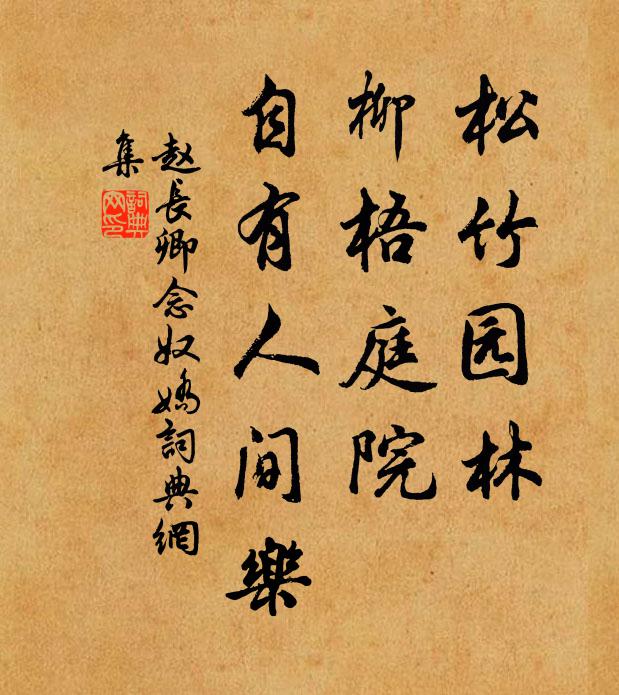 松竹园林
柳梧庭院
自有人间樂
赵長卿念奴嬌詞典網
集
詞典网印